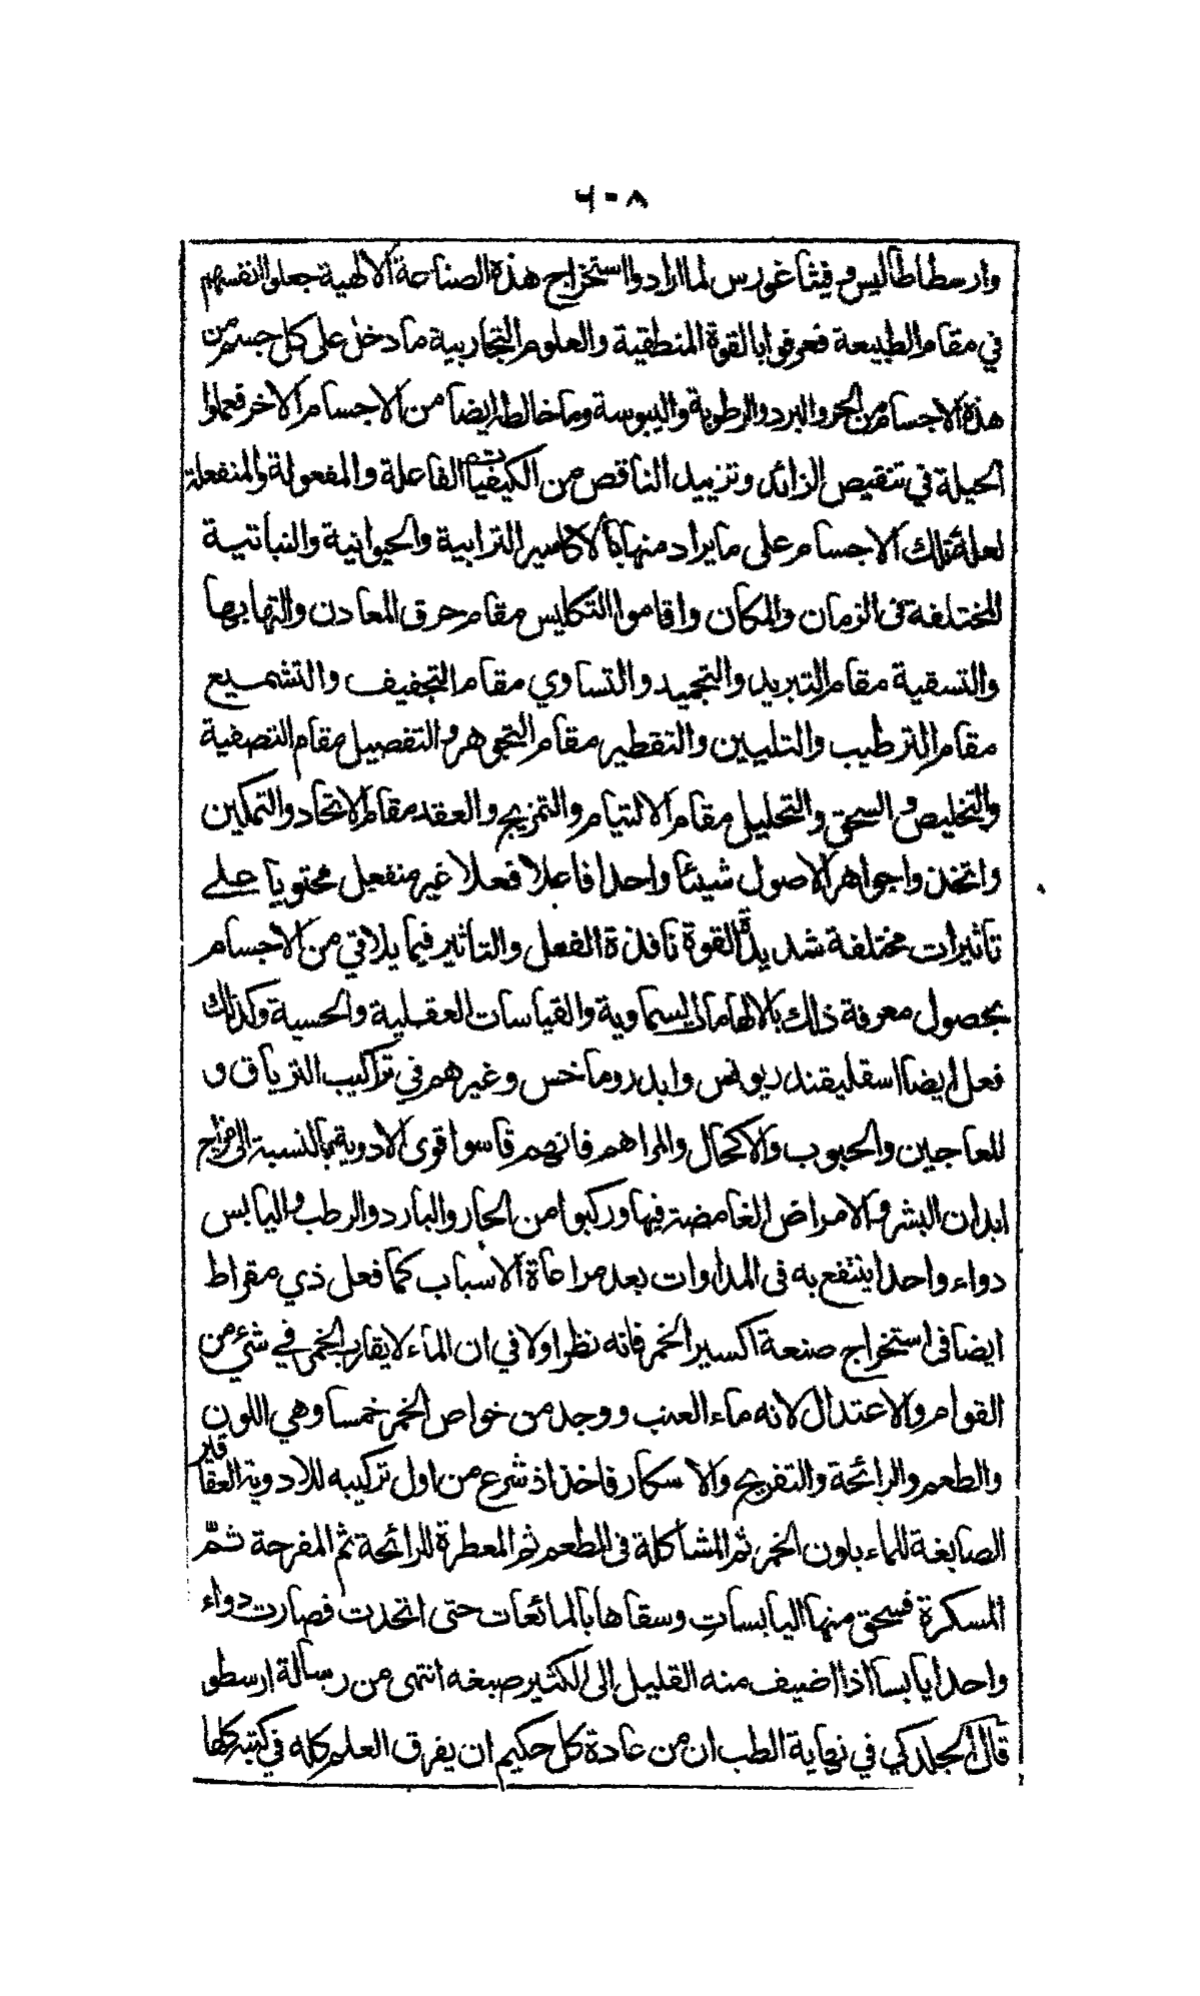 ٦٠٨
وارسطاطاليس وفيثاغورس لما ارادوا استخراج هذه الصناعة الالهية جعلوا انفسهم
في مقام الطبيعة فعرفوا بالقوة المنطقية والعلوم التجاربية ما دخل على كل جسم من
هذه الاجسام من الحر والبرد والرطوبة واليبوسة وما خالطه ايضا من الاجسام الاخر فعملوا
الحيلة في تنقيص الزائد وتزييد الناقص من الكيفيات الفاعلة والمفعولة والمنفعلة
لعلة تلك الاجسام على ما يراد منها بالاكاسير الترابية والحيوانية والنباتية
المختلفة في الزمان والمكان واقاموا التكليس مقام حرق المعادن والتهابها
والتسقية مقام التبريد والتجميد والتساوي مقام التجفيف والتشميع
مقام الترطيب والتليين والتقطير مقام التجوهر والتفصيل مقام التصفية
والتخليص والسحق والتحليل مقام الالتيام والتمزيج والعقد مقام الاتحاد والتمكين
واتخذوا جواهر الاصول شيئا واحدا فاعلا فعلا غير منفعل محتويا على
تاثيرات مختلفة شديدة القوة نافذة الفعل والتاثير فيما يلاقي من الاجسام
بحصول معرفة ذلك بالالهامات السماوية والقياسات العقلية والحسية وكذلك
فعل ايضا اسقليقندريونس وابدروماخس وغيرهم في تراكيب الترياق و
المعاجين والحبوب والاكحال والمراهم فانهم قاسوا قوى الادوية بالنسبة الى مزاج
ابدان البشر والامراض الغامضة فيها وركبوا من الحار والبارد والرطب واليابس
دواء واحدا ينتفع به في المداوات بعد مراعاة الاسباب كما فعل ذي مقراط
ايضا في استخراج صنعة اكسير الخمر فانه نظر اولا في ان الماء لا يقارب الخمر في شيء من
القوام والاعتدال لانه ماء العنب ووجد من خواص الخمر خمسا وهي اللون
والطعم والرائحة والتفريح والاسكار فاخذ اذ شرع من اول تركيبه للادوية العقاقير
الصابغة للماء بلون الخمر ثم المشاكلة في الطعم ثم المعطرة للرائحة ثم المفرحة ثمّ
المسكرة فسحق منها اليابساتِ وسقاها بالمائعات حتى اتحدت فصارت دواء
واحدا يابسا اذا اضيف منه القليل الى الكثير صبغه انتهى من رسالة ارسطو
قال الجلدكي في نهاية الطلب ان من عادة كل حكيم ان يفرق العلم كله في كتبه كلها